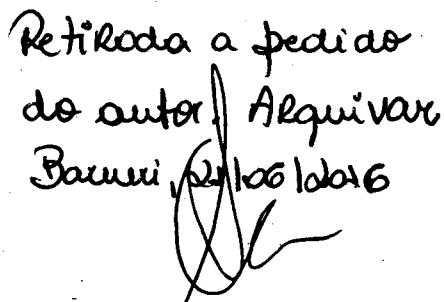 Retirada a pedido
do autor. Arquivar
Barueri, 21/06/2016